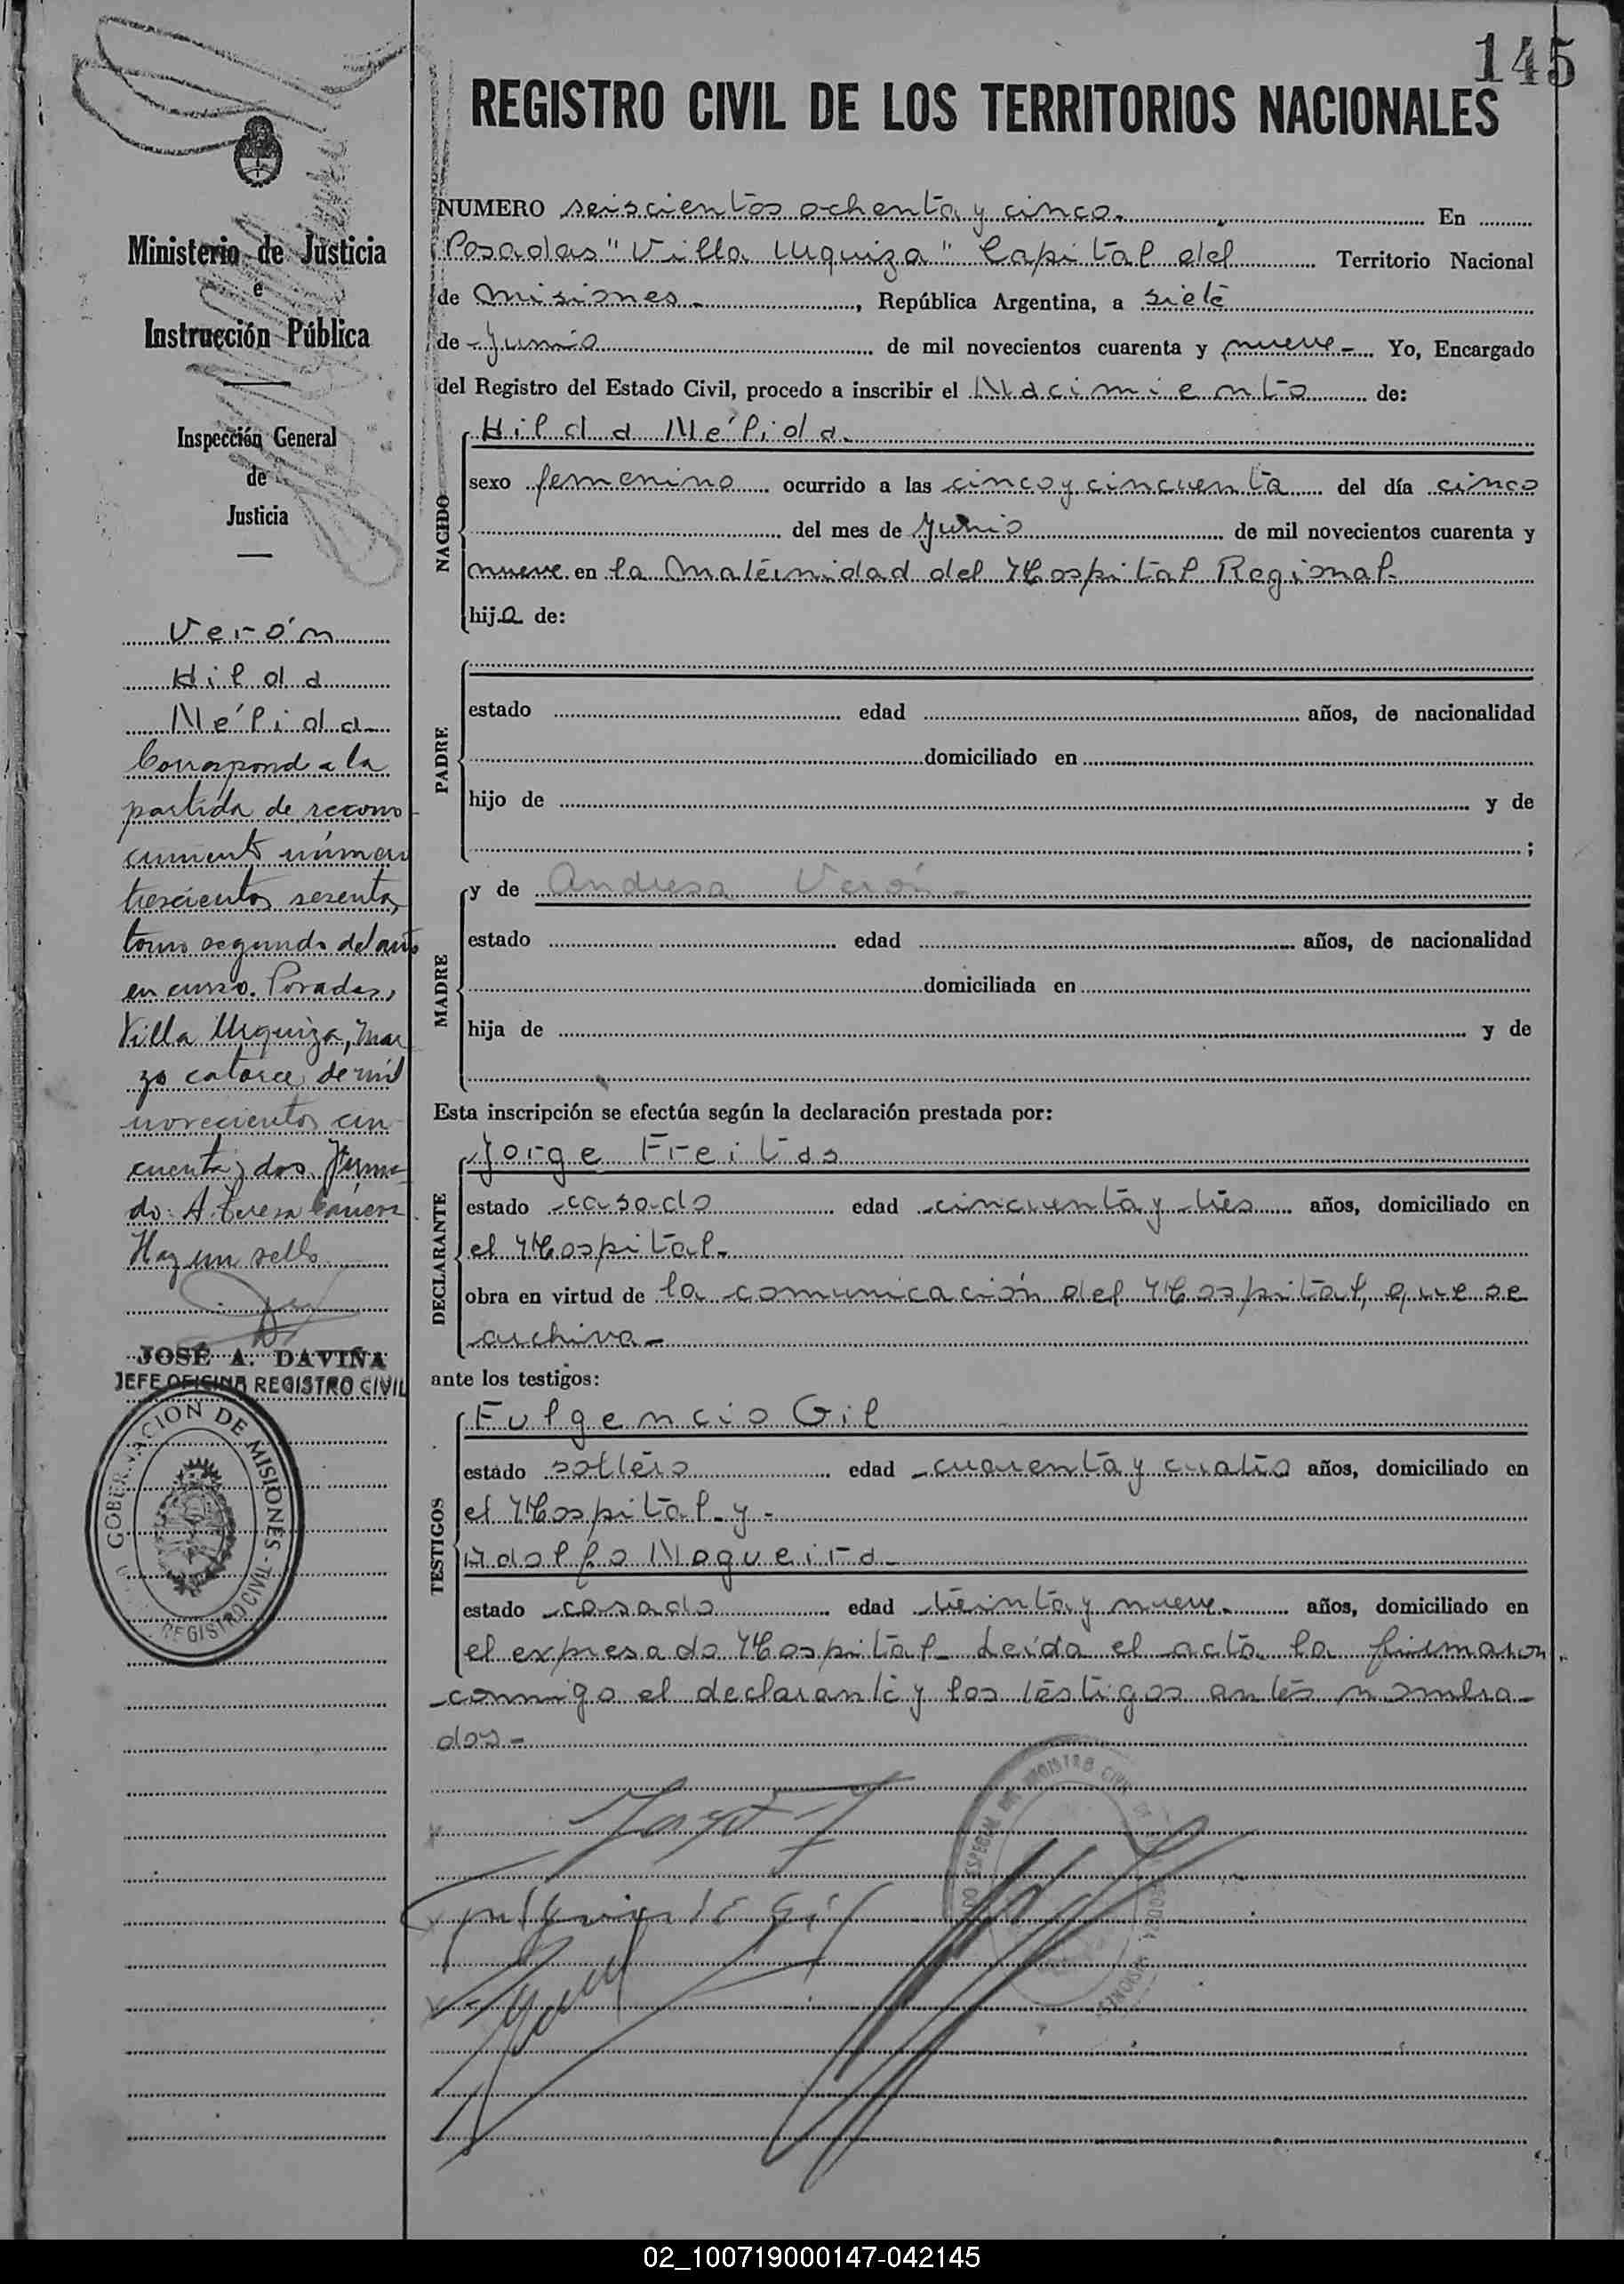 145
REGISTRO CIVIL DE LOS TERRITORIOS NACIONALES
Ministerio de Justicia
e
Instrucción Pública
Inspección General
de
Justicia
Verón
Hilda
Nélida
Correspond a la
partida de recono
cimiento número
trescientos sesenta,
tomo segundo del año
en curso. Posadas,
Villa Urquiza, Mar
zo catorce de mil
novecientos cin
cuenta y dos. Firma
do: A. Teresa
Hay un sello
JOSÉ A. DAVIÑA
JEFE OFICINA REGISTRO CIVIL
GOBERNACION DE MISIONES - REGISTRO CIVIL
NUMERO seiscientos ochenta y cinco. En
Posadas "Villa Urquiza" Capital del Territorio Nacional
de Misiones. , República Argentina, a siete
de Junio de mil novecientos cuarenta y nueve - Yo, Encargado
del Registro del Estado Civil, procedo a inscribir el Nacimiento de:
NACIDO
Hilda Nélida
sexo femenino ocurrido a las cinco y cincuenta del día cinco
del mes de Junio de mil novecientos cuarenta y
nueve en la Maternidad del Hospital Regional.
hija de:
PADRE
estado edad años, de nacionalidad
domiciliado en
hijo de y de
;
MADRE
y de Andresa Verón -
estado edad años, de nacionalidad
domiciliada en
hija de y de
Esta inscripción se efectúa según la declaración prestada por:
DECLARANTE
Jorge Freitas
estado casado edad cincuenta y tres años, domiciliado en
el Hospital.
obra en virtud de la comunicación del Hospital, que se
archiva -
ante los testigos:
TESTIGOS
Fulgencio Gil
estado soltero edad cuarenta y cuatro años, domiciliado en
el Hospital y -
Adolfo Nogueira -
estado casado edad treinta y nueve. años, domiciliado en
el expresado Hospital - Leída el acta la firmaron
conmigo el declarante y los testigos antes nombra-
dos -
02_100719000147-042145